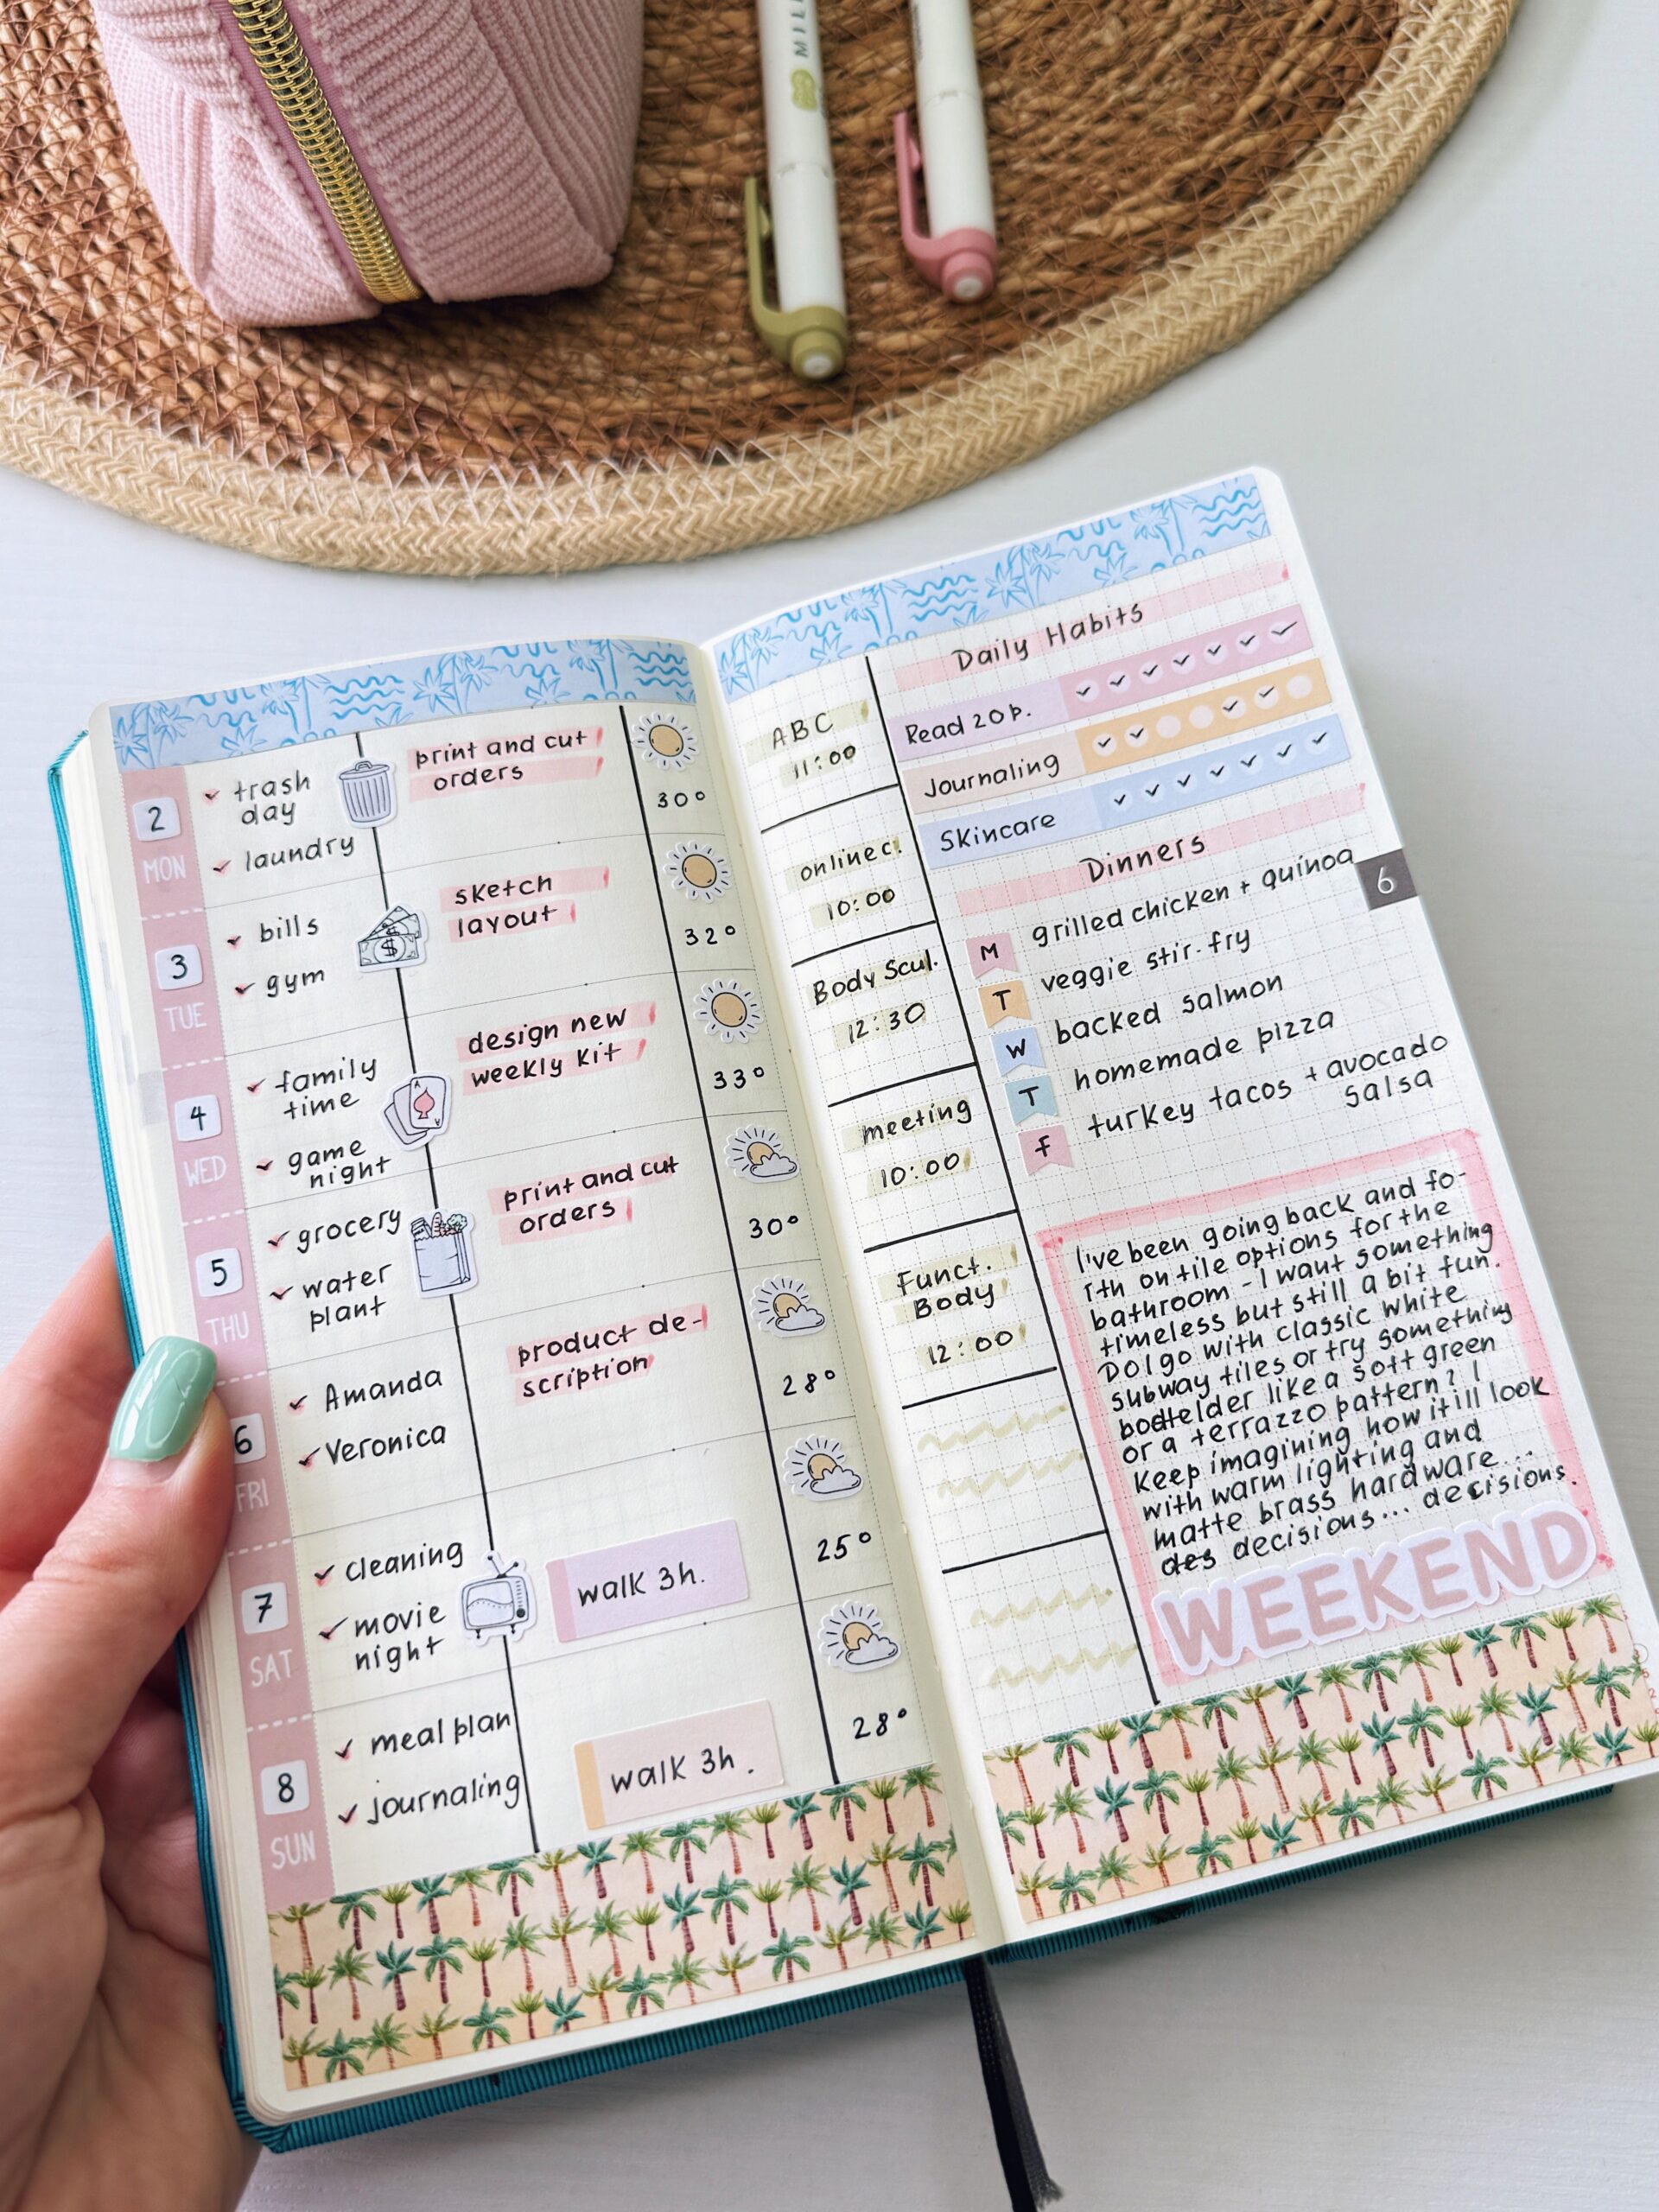 MILD
2
MON
trash
day
laundry
print and cut
orders
30°
3
TUE
bills
gym
sketch
layout
32°
4
WED
family
time
game
night
design new
weekly kit
33°
5
THU
grocery
water
plant
print and cut
orders
30°
6
FRI
Amanda
Veronica
product de-
scription
28°
7
SAT
cleaning
movie
night
walk 3h.
25°
8
SUN
meal plan
journaling
walk 3h.
28°
ABC
11:00
online c.
10:00
Body Scul.
12:30
meeting
10:00
Funct.
Body
12:00
Daily Habits
Read 20p.
Journaling
Skincare
Dinners
6
M grilled chicken + quinoa
T veggie stir-fry
W backed salmon
T homemade pizza
F turkey tacos + avocado
salsa
I've been going back and fo-
rth on tile options for the
bathroom - I want something
timeless but still a bit fun.
Do I go with classic white
subway tiles or try something
like a soft green
or a terrazzo pattern? I
keep imagining how it ill look
with warm lighting and
matte brass hardware...
des decisions... decisions.
WEEKEND